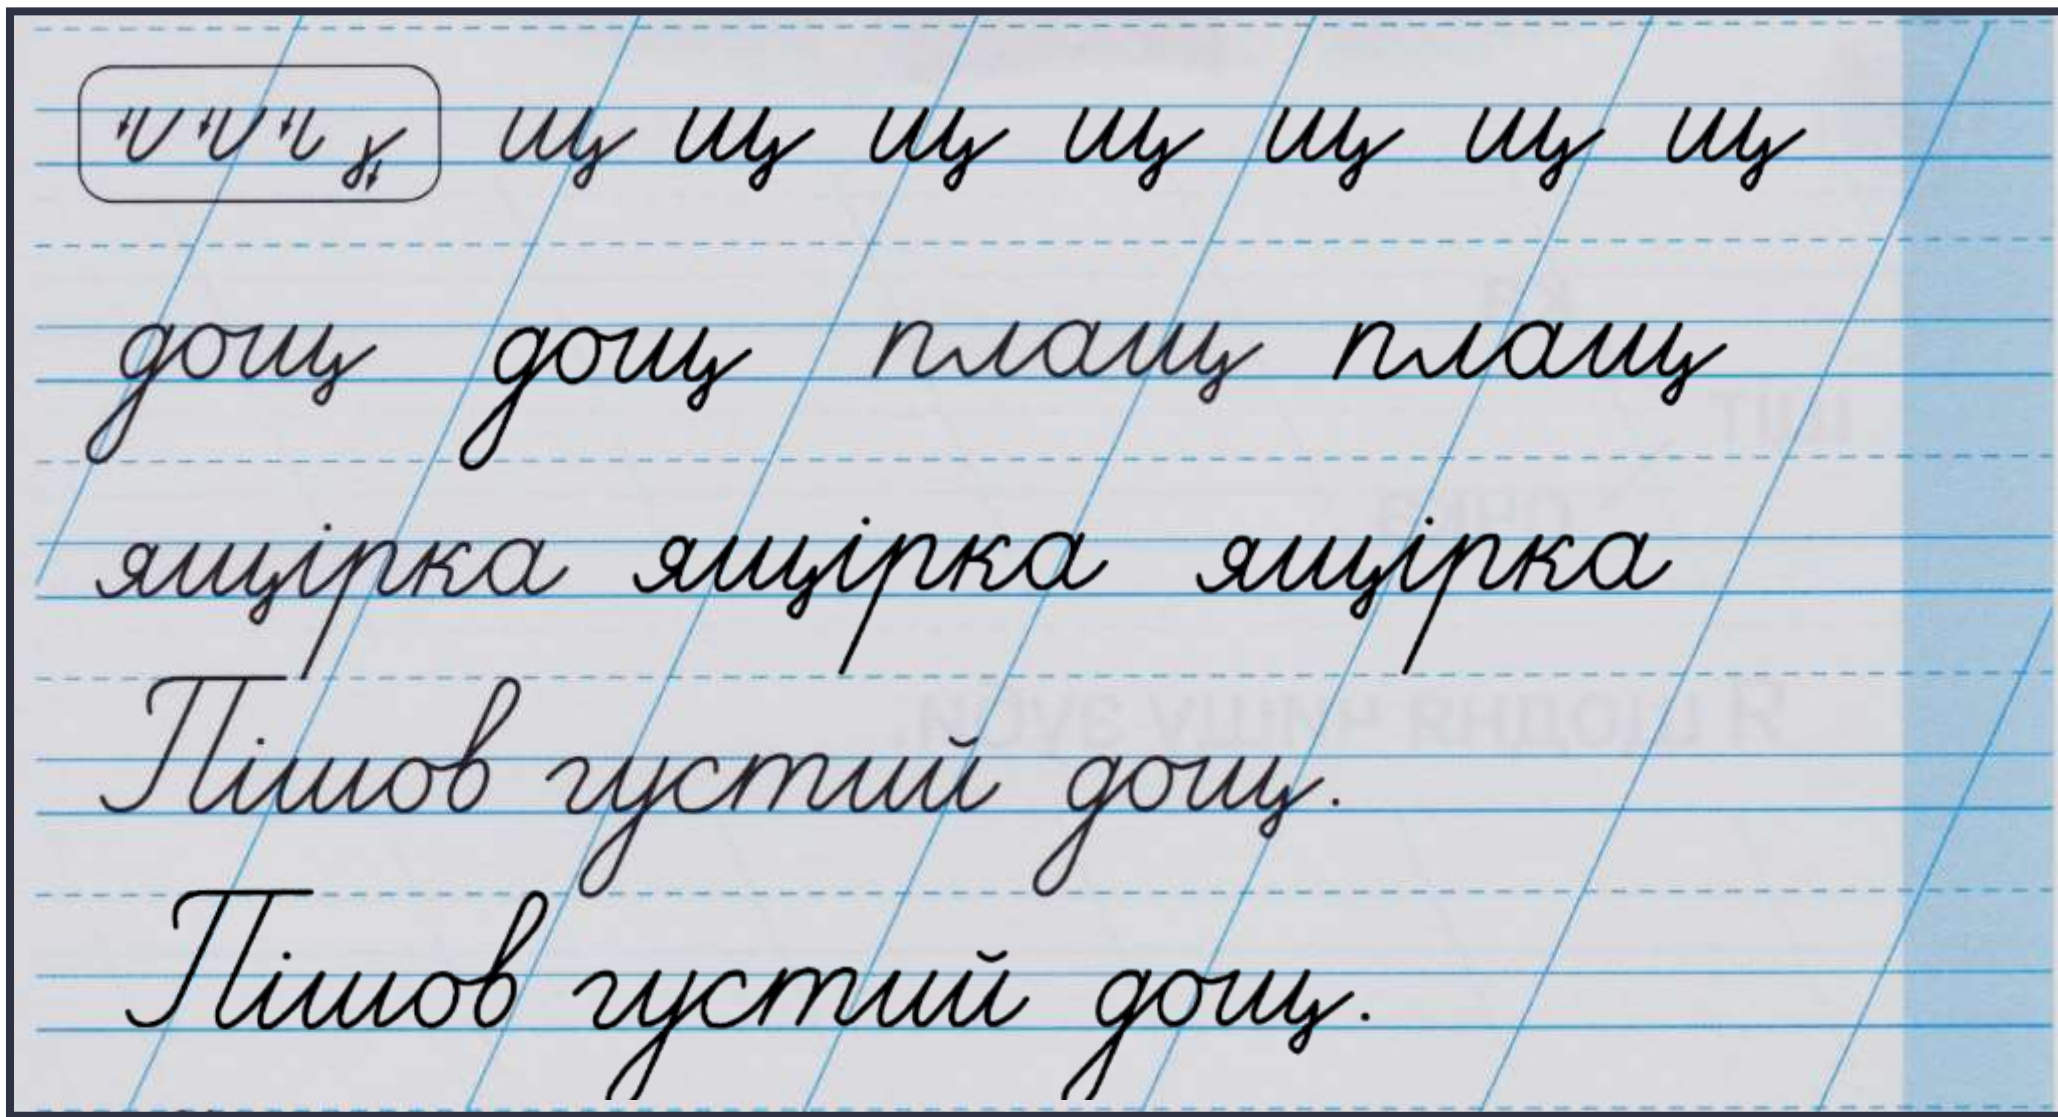 щ щ щ щ щ щ щ
дощ дощ плащ плащ
ящірка ящірка ящірка
Пішов густий дощ.
Пішов густий дощ.